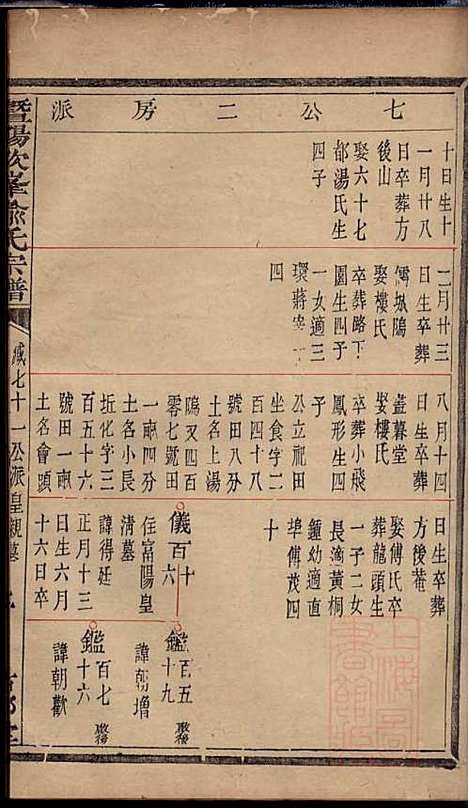 七公二房派
十日生十
一月廿八
日卒葬方
後山
娶六十七
都湯氏生
四子
二月廿三
日生卒葬
雪城隖
娶樓氏
卒葬略下
園生四子
一女適三
環蔣
四
八月十四
日生卒葬
盖暮堂
娶樓氏
卒葬小飛
鳳形生四
子
公立祀田
坐食字二
百四十八
號田八分
土名上湯
隖又四百
零七號田
一畝四分
土名小長
坵化字三
百五十六
號田一畝
土名會頭
日生卒葬
方後菴
娶傅氏卒
葬龍頭生
一子二女
長適黃桐
鍾幼適直
埠傅茂四
十
儀百十六
住富陽皇
清墓
諱得廷
正月十三
日生六月
十六日卒
鑑百五十九
諱朝增
鑑百七十六
諱朝歡
暨陽次峯俞氏宗譜
臧七十一公派皇親墓